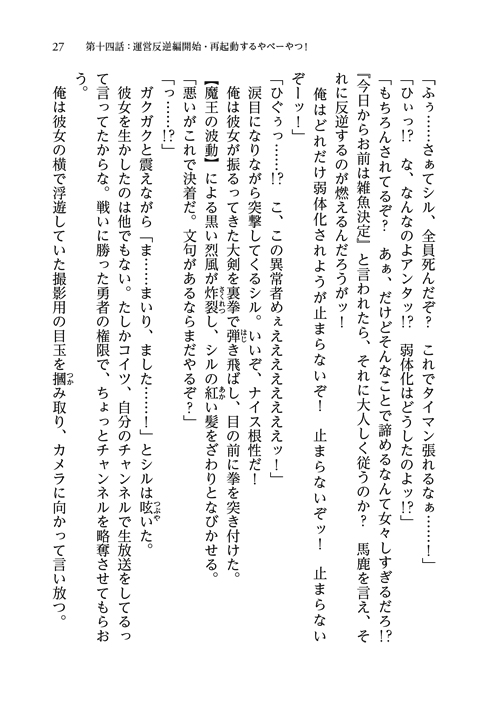 27　第十四話：運営反逆編開始・再起動するやべーやつ！
「ふぅ……さぁてシル、全員死んだぞ？　これでタイマン張れるなぁ……！」
「ひぃっ!?　な、なんなのよアンタッ!?　弱体化はどうしたのよッ!?」
「もちろんされてるぞ？　あぁ、だけどそんなことで諦めるなんて女々しすぎるだろ!?
『今日からお前は雑魚決定』と言われたら、それに大人しく従うのか？　馬鹿を言え、そ
れに反逆するのが燃えるんだろうがッ！
　俺はどれだけ弱体化されようが止まらないぞ！　止まらないぞッ！　止まらない
ぞーッ！」
「ひぐぅっ……!?　こ、この異常者めぇえええええええッ！」
　涙目になりながら突撃してくるシル。いいぞ、ナイス根性だ！
　俺は彼女が振るってきた大剣を裏拳で弾き飛ばし、目の前に拳を突き付けた。
【魔王の波動】による黒い烈風が炸裂し、シルの紅い髪をざわりとなびかせる。
「悪いがこれで決着だ。文句があるならまだやるぞ？」
「っ……!?」
　ガクガクと震えながら「ま……まいり、ました……！」とシルは呟いた。
　彼女を生かしたのは他でもない。たしかコイツ、自分のチャンネルで生放送をしてるっ
て言ってたからな。戦いに勝った勇者の権限で、ちょっとチャンネルを略奪させてもらお
う。
　俺は彼女の横で浮遊していた撮影用の目玉を摑み取り、カメラに向かって言い放つ。